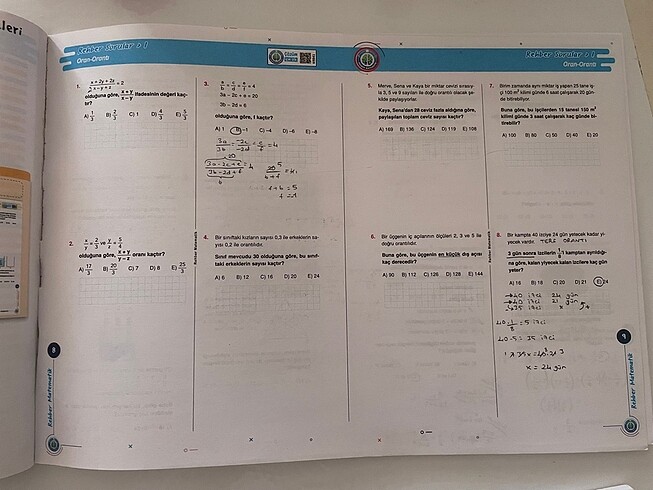 leri
Rehber Sorular • 1
Oran-Orantı
Çözüm
Rehber Sorular • 1
Oran-Orantı
1. x + 2y + 2z / 3x − y + z = 2
olduğuna göre, x + y / x − y ifadesinin değeri kaç-
tır?
A) 1/3 B) 2/3 C) 1 D) 4/3 E) 5/3
2. x/y = 2/3 ve y/z = 5/4
olduğuna göre, x + y / y − z oranı kaçtır?
A) 17/3 B) 20/3 C) 7 D) 8 E) 25/3
3. a/b = c/d = e/f = 4
3a − 2c + e = 20
3b − 2d = 6
olduğuna göre, f kaçtır?
A) 1 B) −1 C) −4 D) −6 E) −8
3a/3b = -2c/-2d = e/f = 4
20
3a-2c+e / 3b-2d+f = 4
6
20 5
6+f = 5
4. Bir sınıftaki kızların sayısı 0,3 ile erkeklerin sa-
yısı 0,2 ile orantılıdır.
Sınıf mevcudu 30 olduğuna göre, bu sınıf-
taki erkeklerin sayısı kaçtır?
A) 6 B) 12 C) 16 D) 20 E) 24
Rehber Matematik
8
Rehber Matematik
5. Merve, Sena ve Kaya bir miktar cevizi sırasıy-
la 3, 5 ve 9 sayıları ile doğru orantılı olacak şe-
kilde paylaşıyorlar.
Kaya, Sena'dan 28 ceviz fazla aldığına göre,
paylaşılan toplam ceviz sayısı kaçtır?
A) 169 B) 136 C) 124 D) 119 E) 108
6. Bir üçgenin iç açılarının ölçüleri 2, 3 ve 5 ile
doğru orantılıdır.
Buna göre, bu üçgenin en küçük dış açısı
kaç derecedir?
A) 90 B) 112 C) 126 D) 128 E) 144
7. Birim zamanda aynı miktar iş yapan 25 tane iş-
çi 100 m² kilimi günde 6 saat çalışarak 20 gün-
de bitirebiliyor.
Buna göre, bu işçilerden 15 tanesi 150 m²
kilimi günde 3 saat çalışarak kaç günde bi-
tirebilir?
A) 100 B) 80 C) 50 D) 40 E) 20
8. Bir kampta 40 izciye 24 gün yetecek kadar yi-
yecek vardır. TERS ORANTI
3 gün sonra izcilerin 1/8'i kamptan ayrıldığı-
na göre, kalan yiyecek kalan izcilere kaç gün
yeter?
A) 16 B) 18 C) 20 D) 21 E) 24
40 izci 24 gün
40 izci 21 gün
35 izci x
40·1/8 = 5 izci
40-5 = 35 izci
35x = 40·21 3
x = 24 gün
Rehber Matematik
9
Rehber Matematik